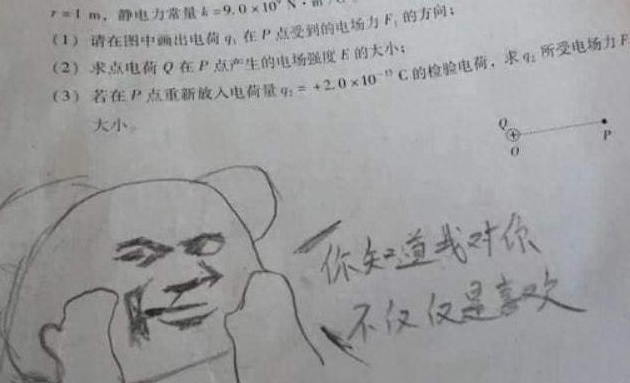 r=1 m，静电力常量 k=9.0×10⁹ N·m
(1) 请在图中画出电荷 q₁ 在 P 点受到的电场力 F₁ 的方向；
(2) 求点电荷 Q 在 P 点产生的电场强度 E 的大小；
(3) 若在 P 点重新放入电荷量 q₂=+2.0×10 C 的检验电荷，求 q₂ 所受电场力 F
大小。
Q
P
O
你知道我对你
不仅仅是喜欢